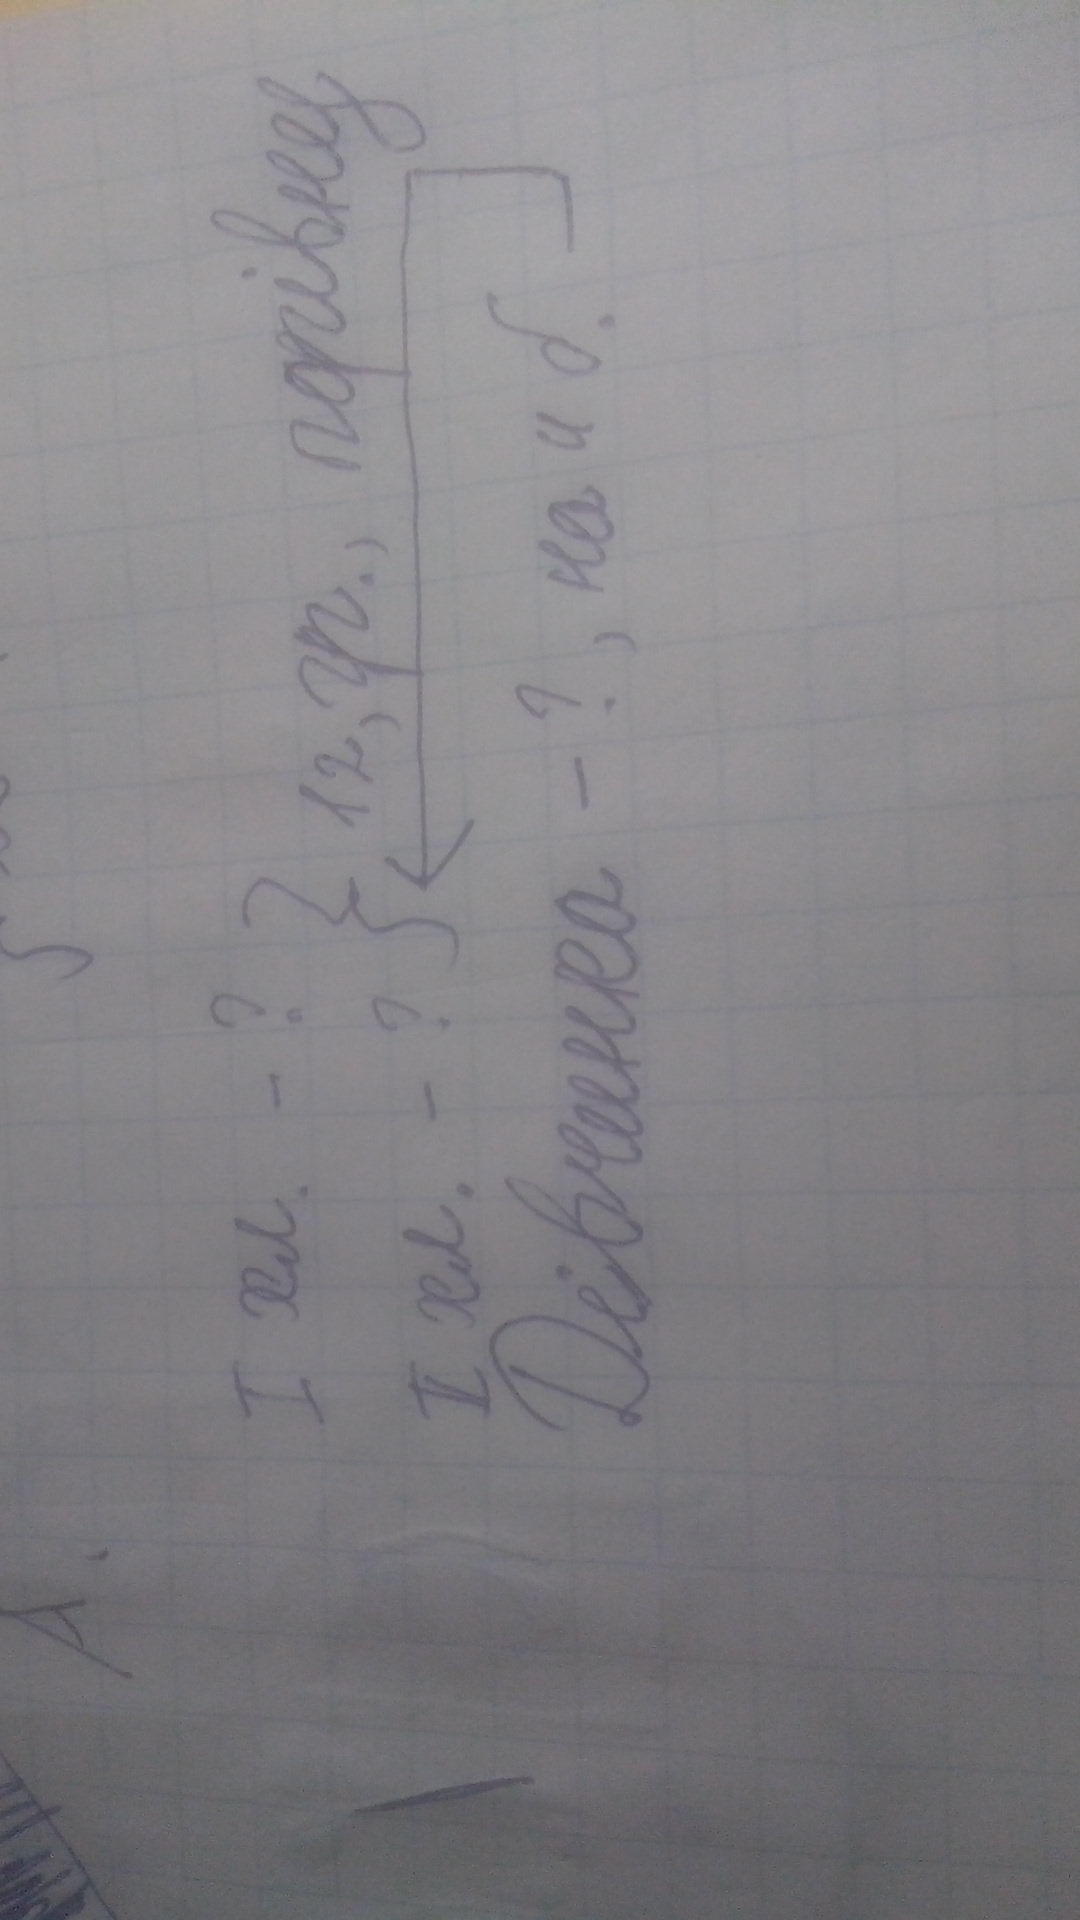 І хл. - ? } 12, гр., порівну
ІІ хл. - ?
Дівчинка - ?, на 4 б.